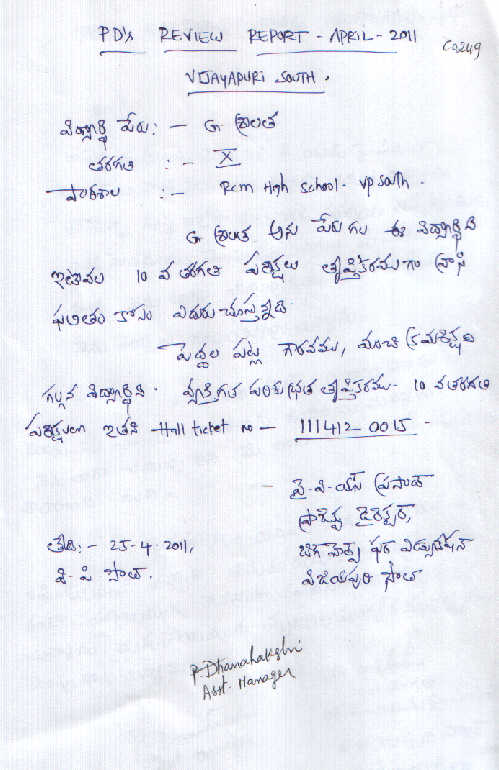 PD's REVIEW REPORT - APRIL - 2011
C0249
VIJAYAPURI SOUTH.
విద్యార్థి పేరు: - G శ్రీలత
తరగతి : - X
పాఠశాల : - Rcm High School - VP South -
G శ్రీలత అను పేరు గల ఈ విద్యార్థిని
ఇటీవల 10 వ తరగతి పరీక్షలు తృప్తికరముగా వ్రాసి
ఫలితం కోసం ఎదురు చూస్తున్నది
పెద్దల పట్ల గౌరవము, మంచి క్రమశిక్షణ
గల్గిన విద్యార్థిని. వ్యక్తిగత పరిశుభ్రత తృప్తికరము - 10 వ తరగతి
పరీక్షలలో Hall ticket no - 111412-0015 -
- వై.వి.యస్ ప్రసాద్
ప్రాజెక్టు డైరెక్టర్,
తేది: - 25-4-2011, ఫర్ ఎడ్యుకేషన్
వి.పి సౌత్. విజయపురి సౌత్
P. Dhanalakshmi
Asst. Manager